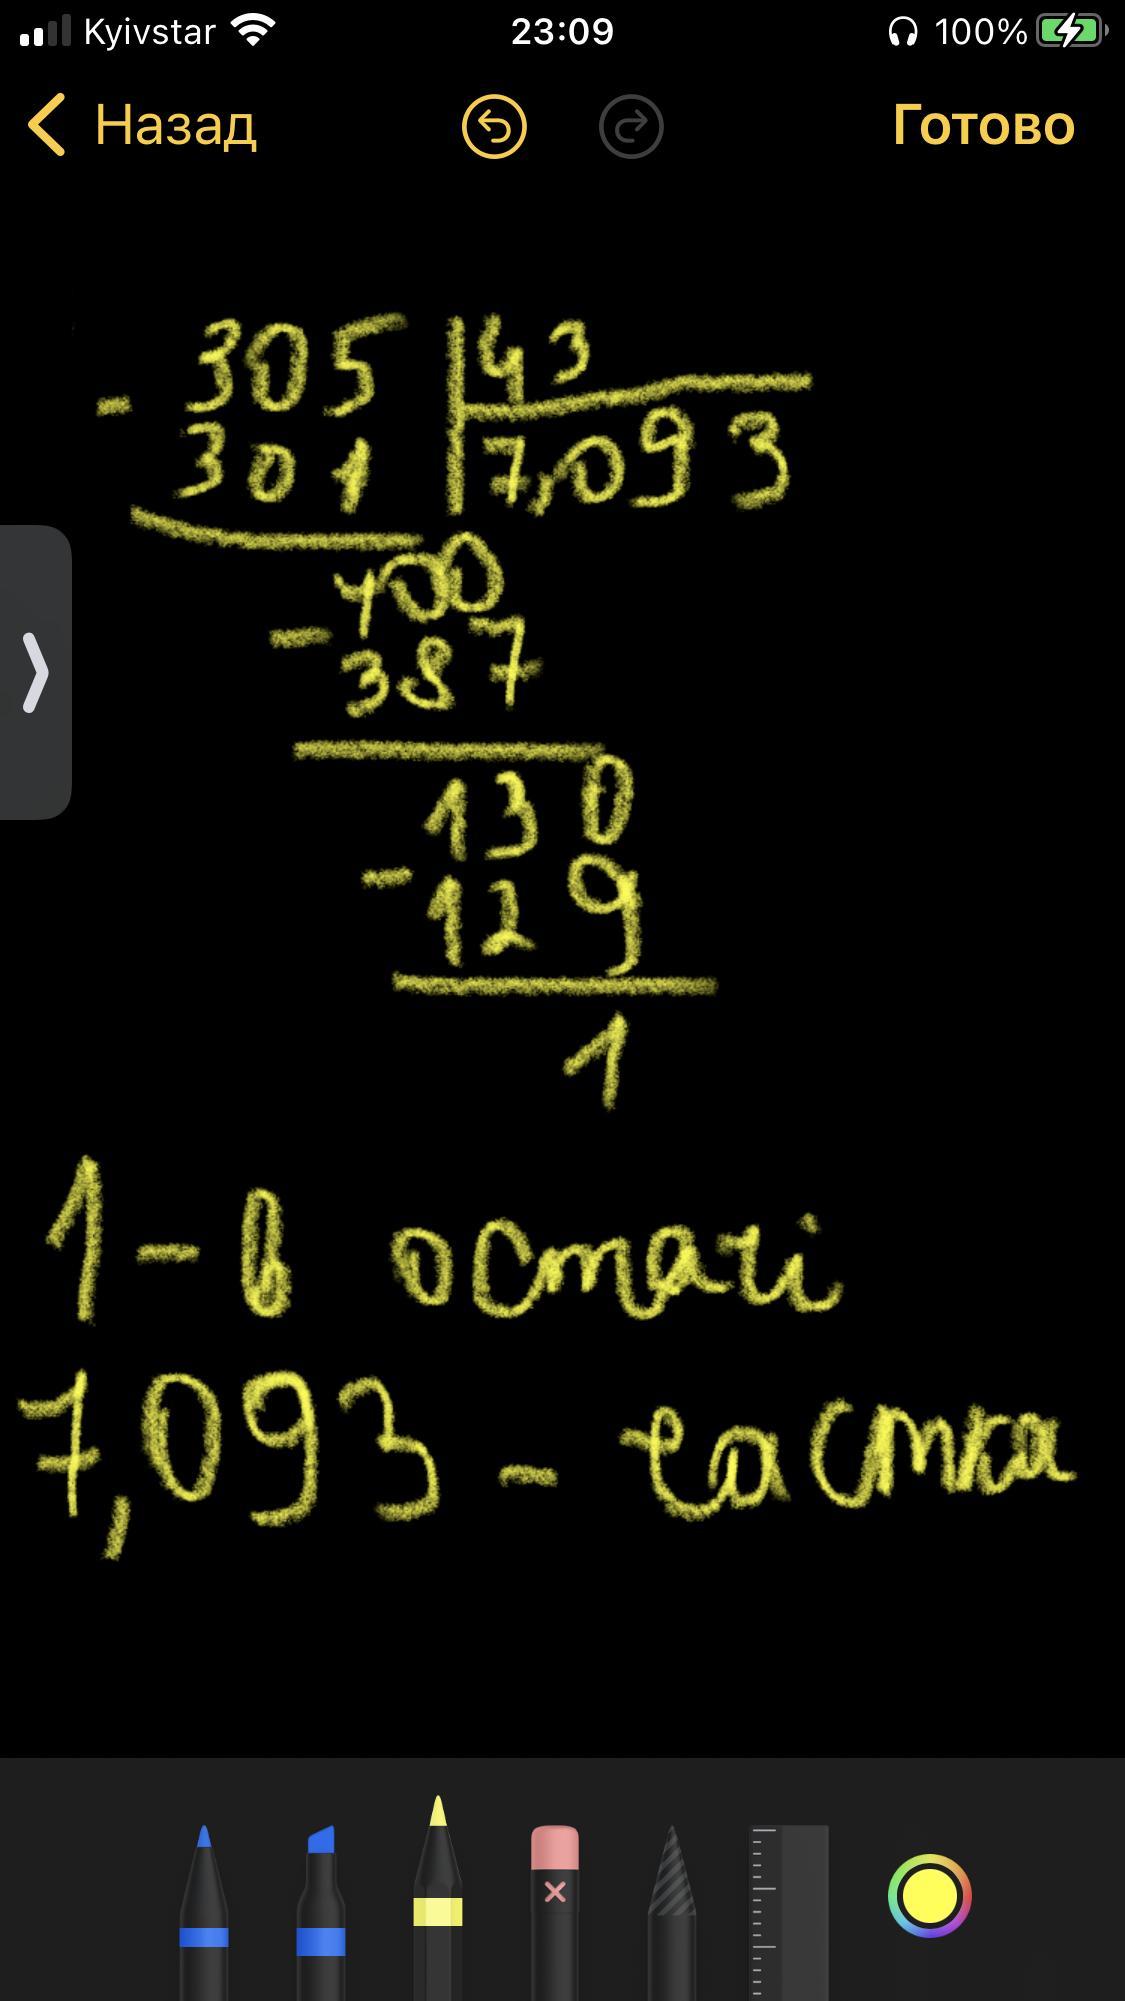 Kyivstar 23:09 100%
Назад Готово
- 305 43
301 7,093
400
- 387
130
- 129
1
1 - в остачі
7,093 - частка